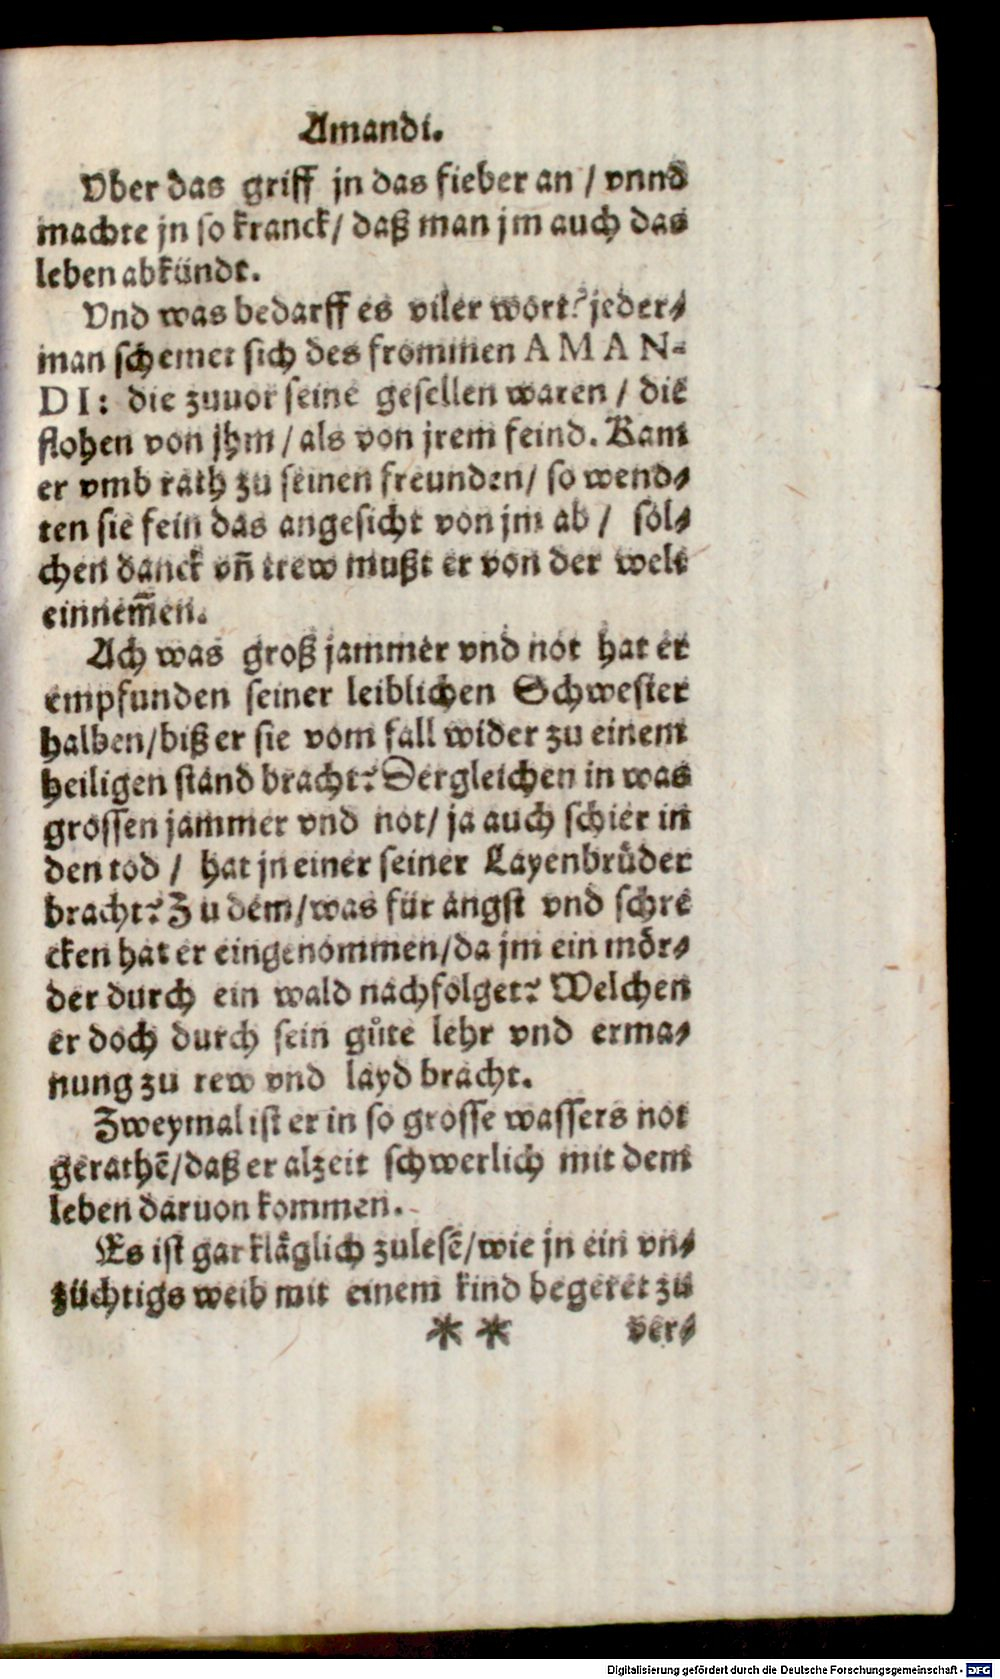 Amandi.
Vber das griff jn das fieber an / vnnd
machte jn so kranck / daß man jm auch das
leben abkündt.
Vnd was bedarff es viler wort? jeder⸗
man schemet sich des frommen AMAN-
DI: die zuuor seine gesellen waren / die
flohen von jhm / als von jrem feind. Kam
er vmb rath zu seinen freunden / so wend⸗
ten sie fein das angesicht von jm ab / sol⸗
chen danck vñ trew mußt er von der welt
einnem̃en.
Ach was groß jammer vnd not hat er
empfunden seiner leiblichen Schwester
halben / biß er sie vom fall wider zu einem
heiligen stand bracht? Dergleichen in was
grossen jammer vnd not / ja auch schier in
den tod / hat jn einer seiner Layenbrůder
bracht? Zu dem / was für angst vnd schre
cken hat er eingenommen / da jm ein mör⸗
der durch ein wald nachfolget? Welchen
er doch durch sein gůte lehr vnd erma⸗
nung zu rew vnd layd bracht.
Zweymal ist er in so grosse wassers not
gerathẽ / daß er alzeit schwerlich mit dem
leben daruon kommen.
Es ist gar kläglich zulesẽ / wie jn ein vn⸗
züchtigs weib mit einem kind begeret zu
** ver⸗
Digitalisierung gefördert durch die Deutsche Forschungsgemeinschaft - DFG